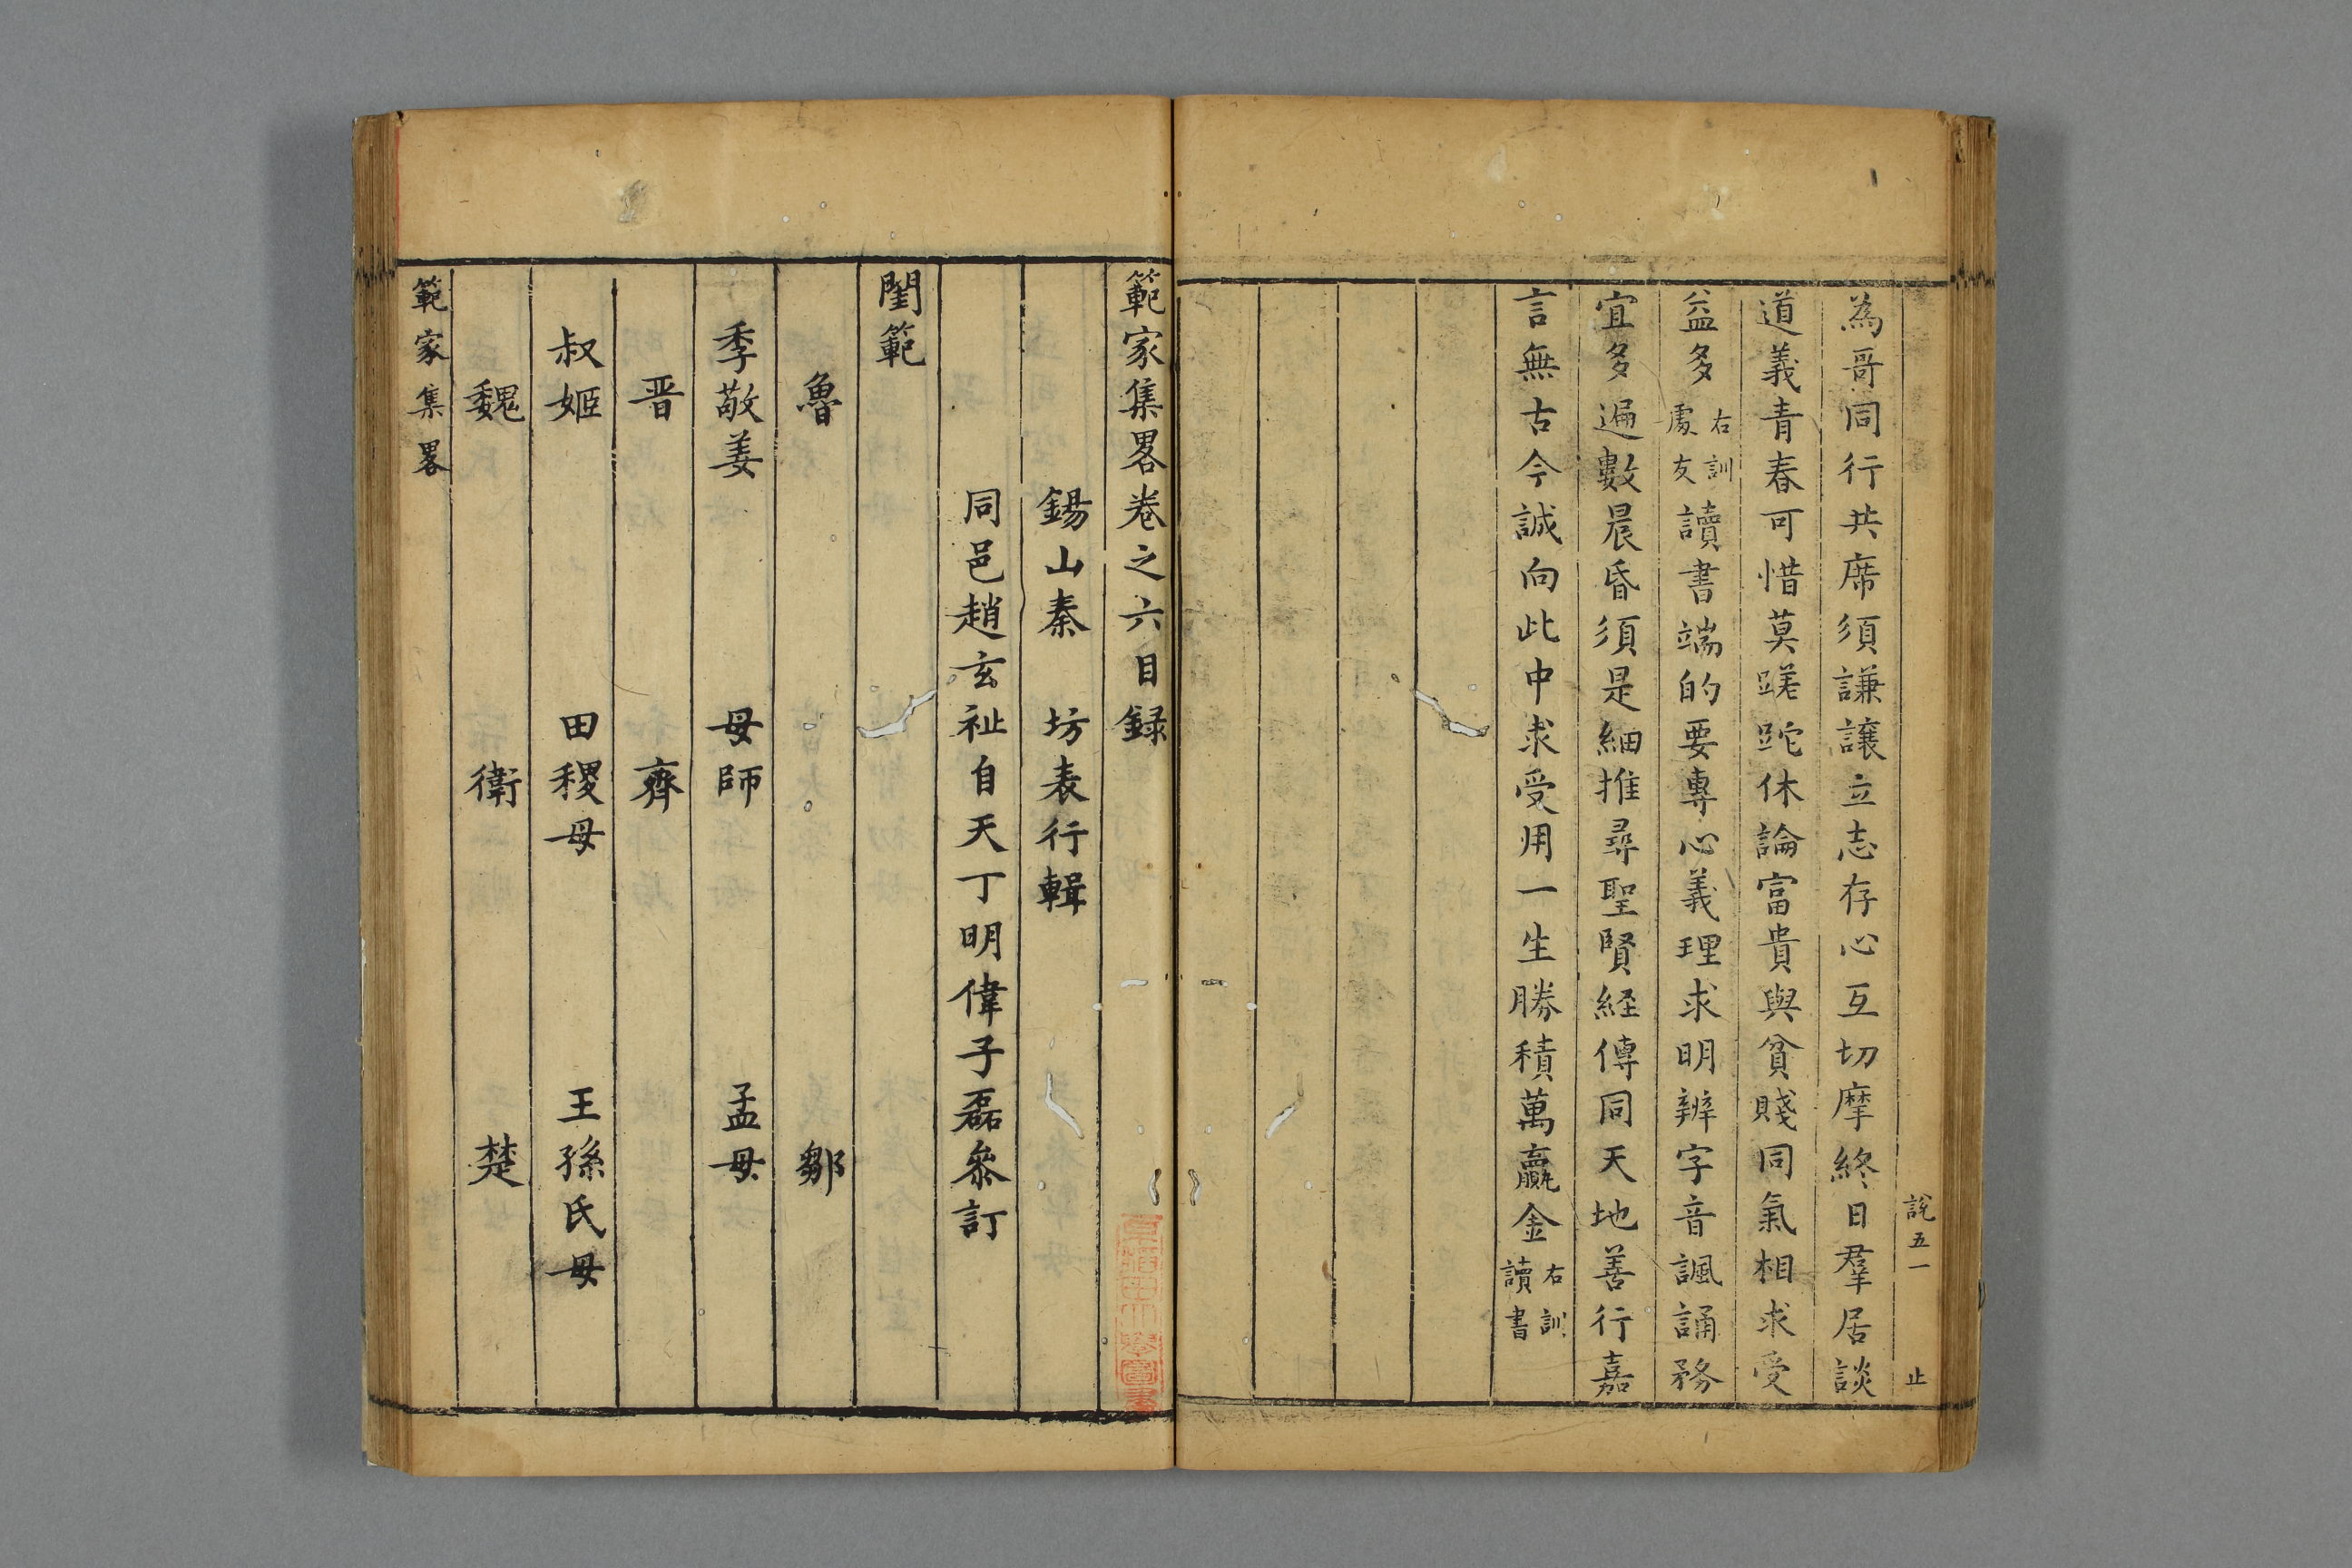 說五一
止
為哥同行共席須謙讓立志存心互切摩終日羣居談
道義青春可惜莫蹉跎休論富貴與貧賤同氣相求受
益多右訓處友讀書端的要專心義理求明辨字音諷誦務
宜多遍數晨昏須是細推尋聖賢経傳同天地善行嘉
言無古今誠向此中求受用一生勝積萬贏金右訓讀書
範家集畧卷之六目録
錫山秦 坊表行輯
同邑趙玄祉自天丁明偉子磊叅訂
閨範
魯 鄒
季敬姜 母師 孟母
晋 齊
叔姬 田稷母 王孫氏母
魏 衛 楚
範家集畧